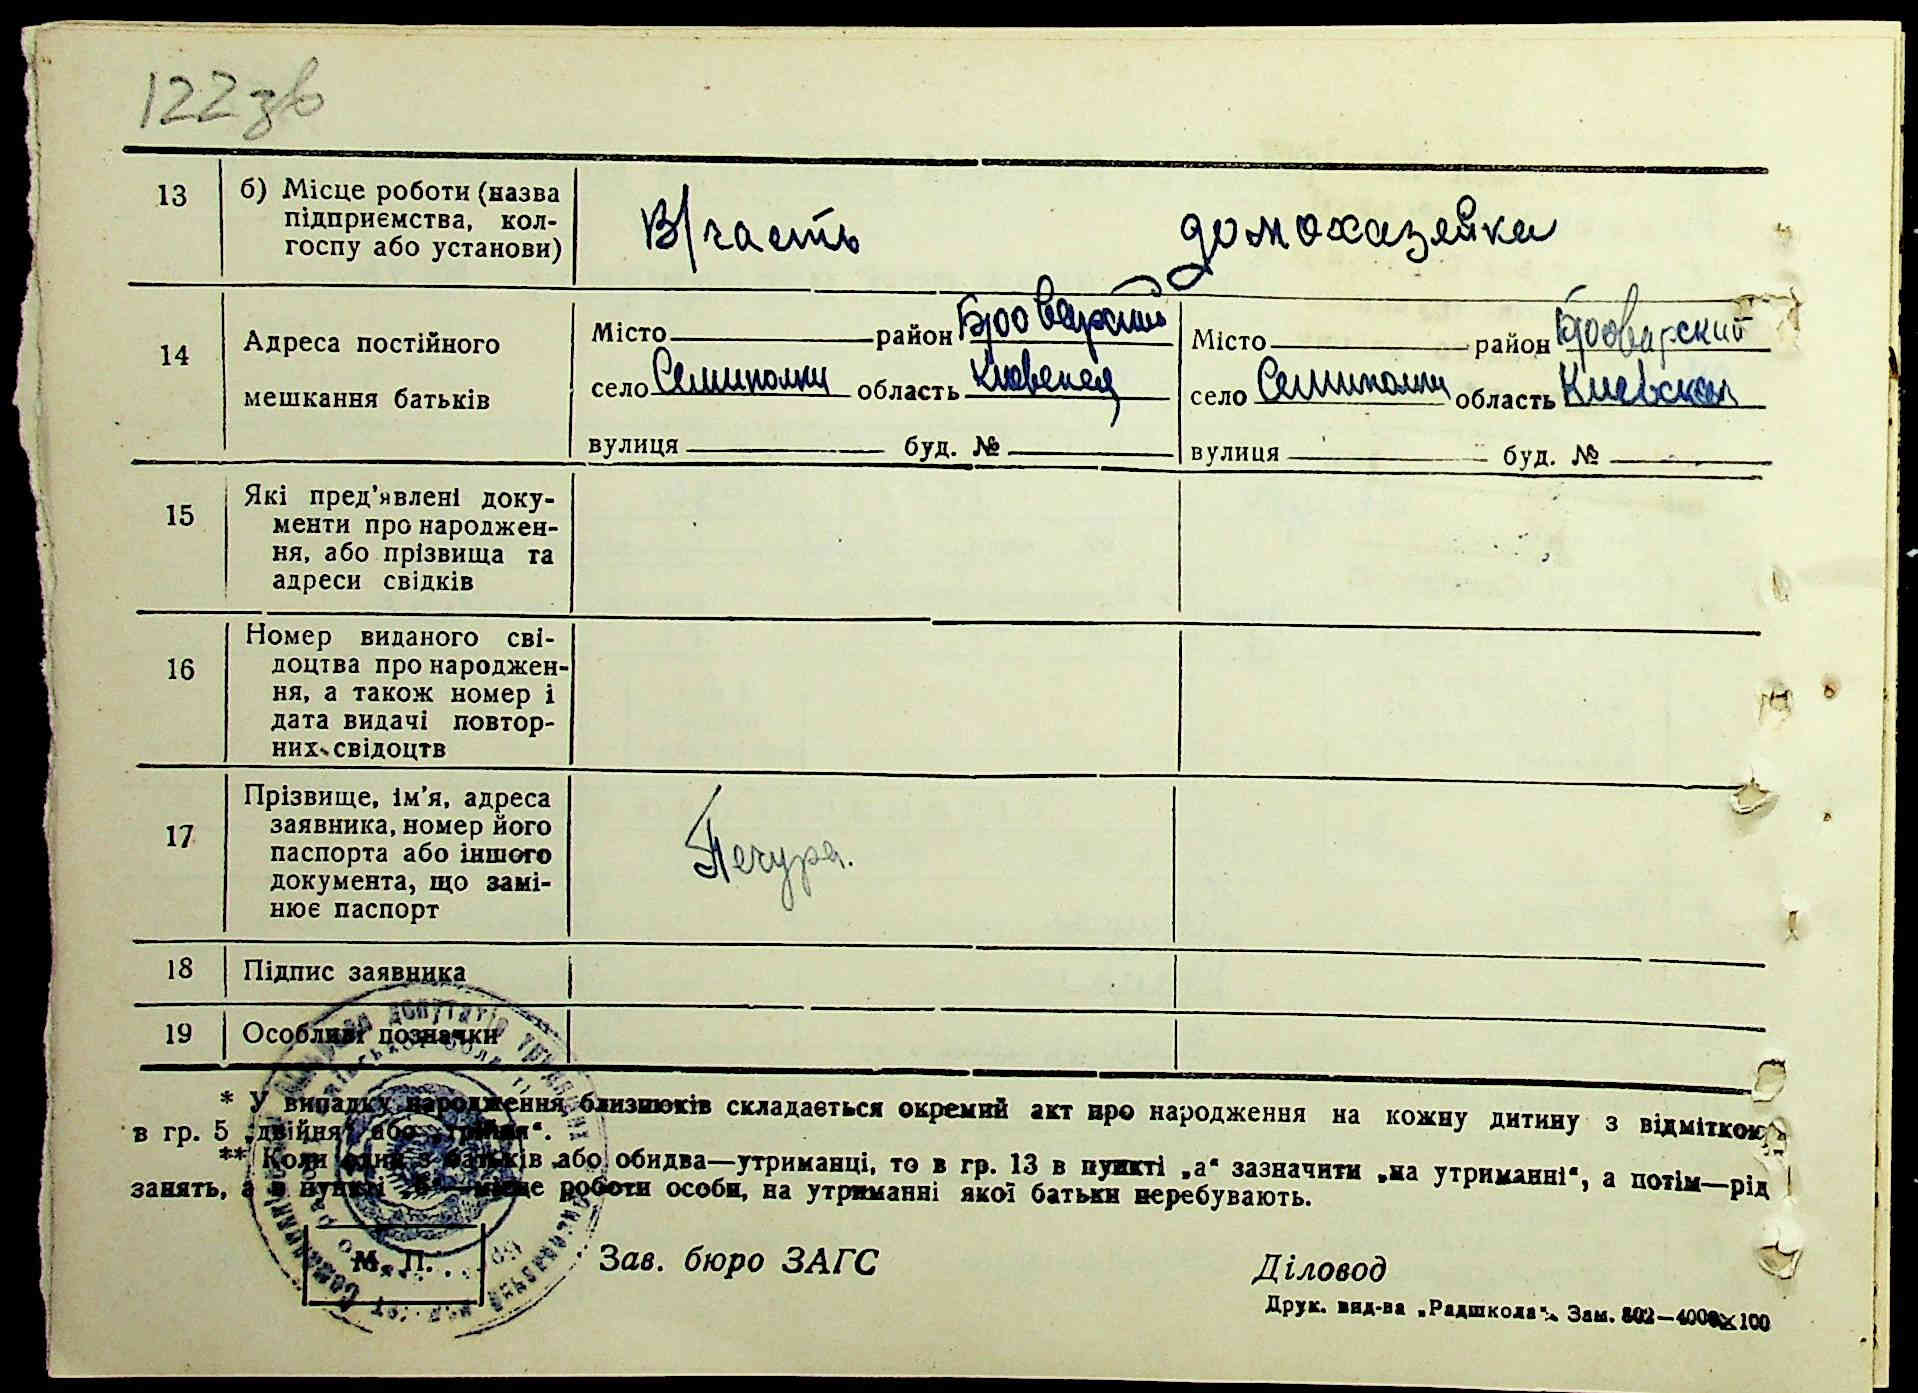 122 зв
13 б) Місце роботи (назва
підприємства, кол-
госпу або установи)
В/часть домохазяйка
14 Адреса постійного
мешкання батьків
Місто район Броварский
село Семиполки область Киевская
вулиця буд. №
Місто район Броварский
село Семиполки область Киевская
вулиця буд. №
15 Які пред'явлені доку-
менти про народжен-
ня, або прізвища та
адреси свідків
16 Номер виданого сві-
доцтва про народжен-
ня, а також номер і
дата видачі повтор-
них свідоцтв
17 Прізвище, ім'я, адреса
заявника, номер його
паспорта або іншого
документа, що замі-
нює паспорт
Печура.
18 Підпис заявника
19 Особливі позначки
* У випадку народження близнюків складається окремий акт про народження на кожну дитину з відміткою
в гр. 5 „двійня" або „трійня".
** Коли один з батьків або обидва—утриманці, то в гр. 13 в пункті „а" зазначити „на утриманні", а потім—рід
занять, а в пункті „б"—місце роботи особи, на утриманні якої батьки перебувають.
М. П. Зав. бюро ЗАГС Діловод
Друк. вид-ва „Радшкола". Зам. 802—4000×100
депутатів трудящих